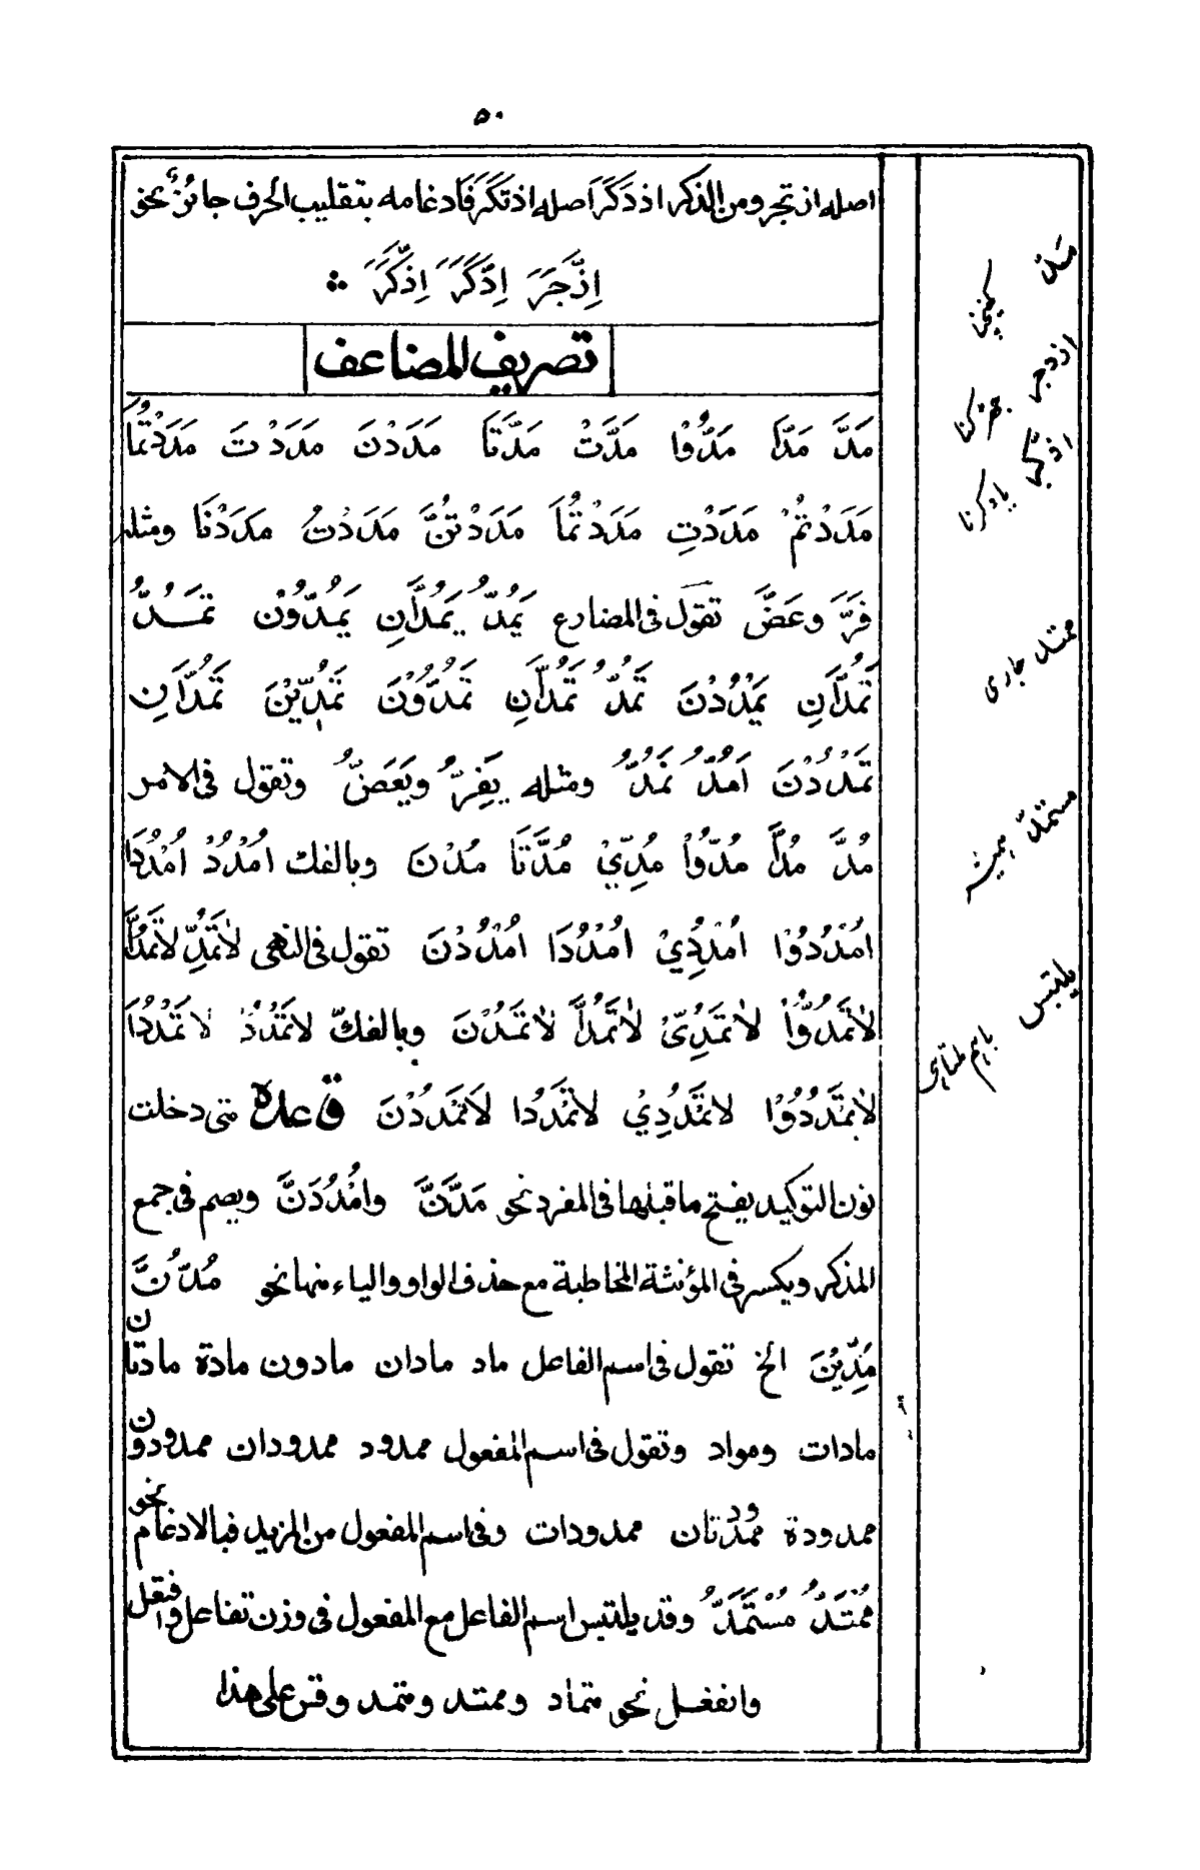 ٥٠
اصله ازتجر ومن الذكر اذدكر اصله اذتكر فادغامه بتقليب الحرف جائز نحو
اِزَّجَرَ اِدَّكَرَ اِذَّكَرَ
تصريف المضاعف
مَدَّ مَدَّا مَدُّوْا مَدَّتْ مَدَّتَا مَدَدْنَ مَدَدْتَ مَدَدْتُمَا
مَدَدْتُمْ مَدَدْتِ مَدَدْتُمَا مَدَدْتُنَّ مَدَدْتُ مَدَدْنَا ومثله
فَرَّ وعَضَّ تقول فى المضارع يَمُدُّ يَمُدَّانِ يَمُدُّوْنَ تَمُدُّ
تَمُدَّانِ يَمْدُدْنَ تَمُدُّ تَمُدَّانِ تَمُدُّوْنَ تَمُدِّيْنَ تَمُدَّانِ
تَمْدُدْنَ اَمُدُّ نَمُدُّ ومثله يَفِرُّ ويَعَضُّ وتقول فى الامر
مُدَّ مُدَّا مُدُّوْا مُدِّيْ مُدَّتَا مُدْنَ وبالفك اُمْدُدْ اُمْدُدَا
اُمْدُدُوْا اُمْدُدِيْ اُمْدُدَا اُمْدُدْنَ تقول فى النهى لَاتَمُدِّ لَاتَمُدَّا
لَاتَمُدُّوْا لَاتَمُدِّىْ لَاتَمُدَّا لَاتَمُدْنَ وبالفكّ لَاتَمْدُدْ لَاتَمْدُدَا
لَاتَمْدُدُوْا لَاتَمْدُدِيْ لَاتَمْدُدَا لَاتَمْدُدْنَ قاعده متى دخلت
نون التوكيد يفتح ما قبلها فى المفرد نحو مَدَّنَّ وامْدُدَنَّ ويضم فى جمع
المذكر ويكسر فى المؤنثة المخاطبة مع حذف الواو والياء منها نحو مُدُّنَّ
مُدِّيْنَ الخ تقول فى اسم الفاعل ماد مادان مادون مادة مادتان
مادات ومواد وتقول فى اسم المفعول ممدود ممدودان ممدودون
ممدودة ممدودتان ممدودات وفى اسم المفعول من المزيد فبالادغام نحو
مُمْتَدٌّ مُسْتَمَدٌّ وقد يلتبس اسم الفاعل مع المفعول فى وزن تفاعل وافتعل
وانفعل نحو متماد وممتد ومنمد وقس على هذا
مدّ
كهينچنا
ازدجر
جھڑكنا
اذّكر
ياد كرنا
ممتد جارى
مستمدّ
يلتبس
باہم ملتا ہے